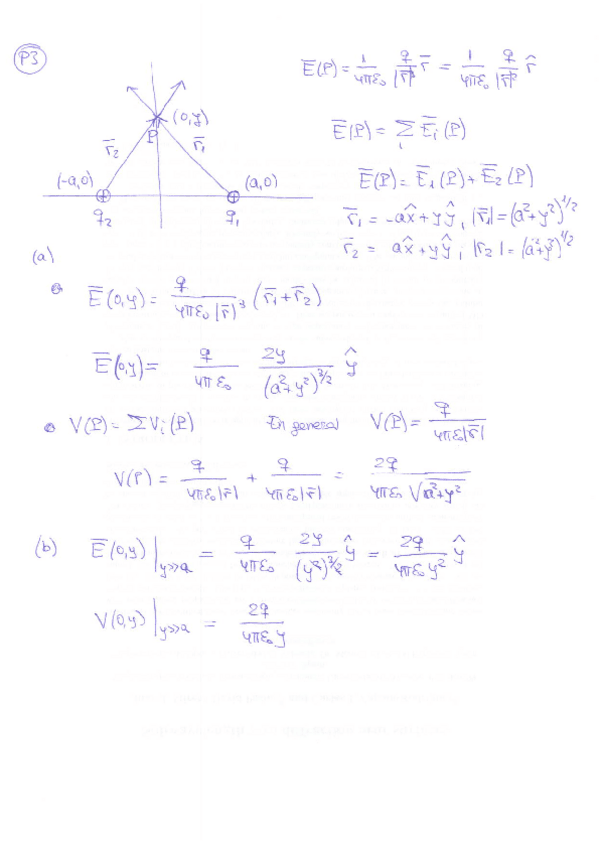 P3
E̅(P) = 1/4πε₀ q/|r̅|³ r̅ = 1/4πε₀ q/|r̅|² r̂
(0,y)
P
r̅₂ r̅₁
E̅(P) = Σᵢ E̅ᵢ(P)
(-a,0) (a,0)
E̅(P) = E̅₁(P) + E̅₂(P)
q₂ q₁
r̅₁ = -ax̂ + yŷ, |r̅₁| = (a²+y²)^1/2
r̅₂ = ax̂ + yŷ; |r₂| = (a²+y²)^1/2
(a)
E̅(0,y) = q/4πε₀|r̅|³ (r̅₁ + r̅₂)
E̅(0,y) = q/4πε₀ 2y/(a²+y²)^3/2 ŷ
V(P) = ΣVᵢ(P) In general V(P) = q/4πε₀|r̅|
V(P) = q/4πε₀|r̅| + q/4πε₀|r̅| = 2q/4πε₀ √a²+y²
(b) E̅(0,y)|y>>a = q/4πε₀ 2y/(y²)^3/2 ŷ = 2q/4πε₀y² ŷ
V(0,y)|y>>a = 2q/4πε₀y